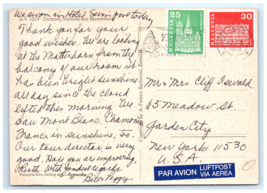 We swim in Hotel Seven pool today
Thank you for your
good wishes. We are looking
at the Matterhorn from the
balcony of our room. It
has been bright sunshine
all day since the cloud
lifted this morning. We
saw Mont Blanc, Chamonix
France in sunshine, too.
Our tour director is very
good. Hope you are improving,
Keith, with
HELVETIA 25
HELVETIA 30
Mr. & Mrs. Cliff Oswald
65 Meadow St.
Garden City
New York 11530
U.S.A.
PAR AVION LUFTPOST
VIA AEREA